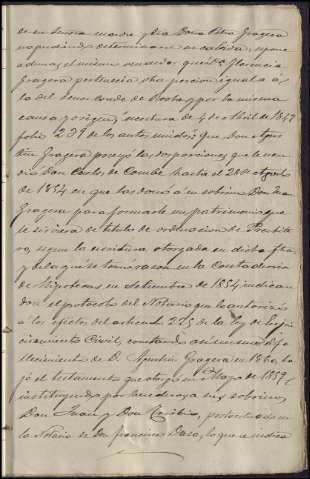 de su Señora madre y tia Doña Petra Gragera
no pudiendo determinarse su cabida; espone
ademas el mismo vendedor que el D. Florencio
Gragera pertenecia otra porcion igual a
la del Señor Conde de por la misma
causa y origen, escritura de 4 de Abril de 1849
folio 239 de los autos unidos; que Don Agus
tin Gragera poseyó las dos porciones que le ven
dio Don Carlos de Combe hasta el 28 de Agosto
de 1854 en que las donó á su sobrino Don Juan
Gragera para formarle un patrimonio que
le sirviera de titulo de ordenacion de Presbite
ro, segun la escritura otorgada en dicha fha
y de la que se tomó razon en la Contaduria
de Hipotecas en Setiembre de 1854, indican
do el protocolo del Notario que la autorizó
á los efectos del articulo 225 de la ley de Enjui
ciamiento Civil, constando asimismo el fa
llecimiento de D. Agustin Gragera en 1860, ba
jo el testamento que otorgó en Mayo de 1859
instituyendo por herederos á sus sobrinos
Don Juan y Don Toribio, protocolado en
la Notaria de Don Francisco Daza, lo que se indica